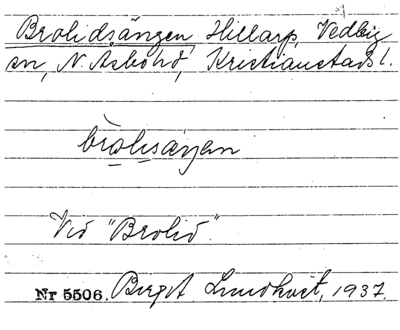 Brolidsängen, Hillarp, Vedby
sn, N. Åsbohd, Kristianstads l.
brolisäŋen
Vid "Brolid".
Nr 5506. Birgit Lundkvist, 1937.